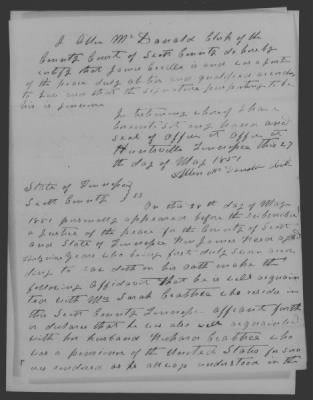 I Allen McDonald Clerk of the
County Court of Scott County do hereby
certify that James Cecill is and was a Justice
of the peace duly elected and qualified according
to law and that the signature purporting to be
his is genuine
In testimony whereof I have
hereunto set my hand and
Seal of Office at Office at
Huntsville Tennessee this 27
th day of May 1851
Allen McDonald Clk
State of Tennessee
Scott County SS
On the 28th day of May
1851 personally appeared before the subscriber
a Justice of the peace for the County of Scott
and State of Tennessee Rev James aged
years who being first duly sworn accor
ding to law doth on his oath make the
following Affidavit that he is well acquain
ted with Mrs Sarah Crabtree who resides in
this Scott County Tennessee affiant furth
er declares that he was also well acquainted
with her husband Richard Crabtree who
was a pensioner of the United States for serv
ices rendered as he always understood in the